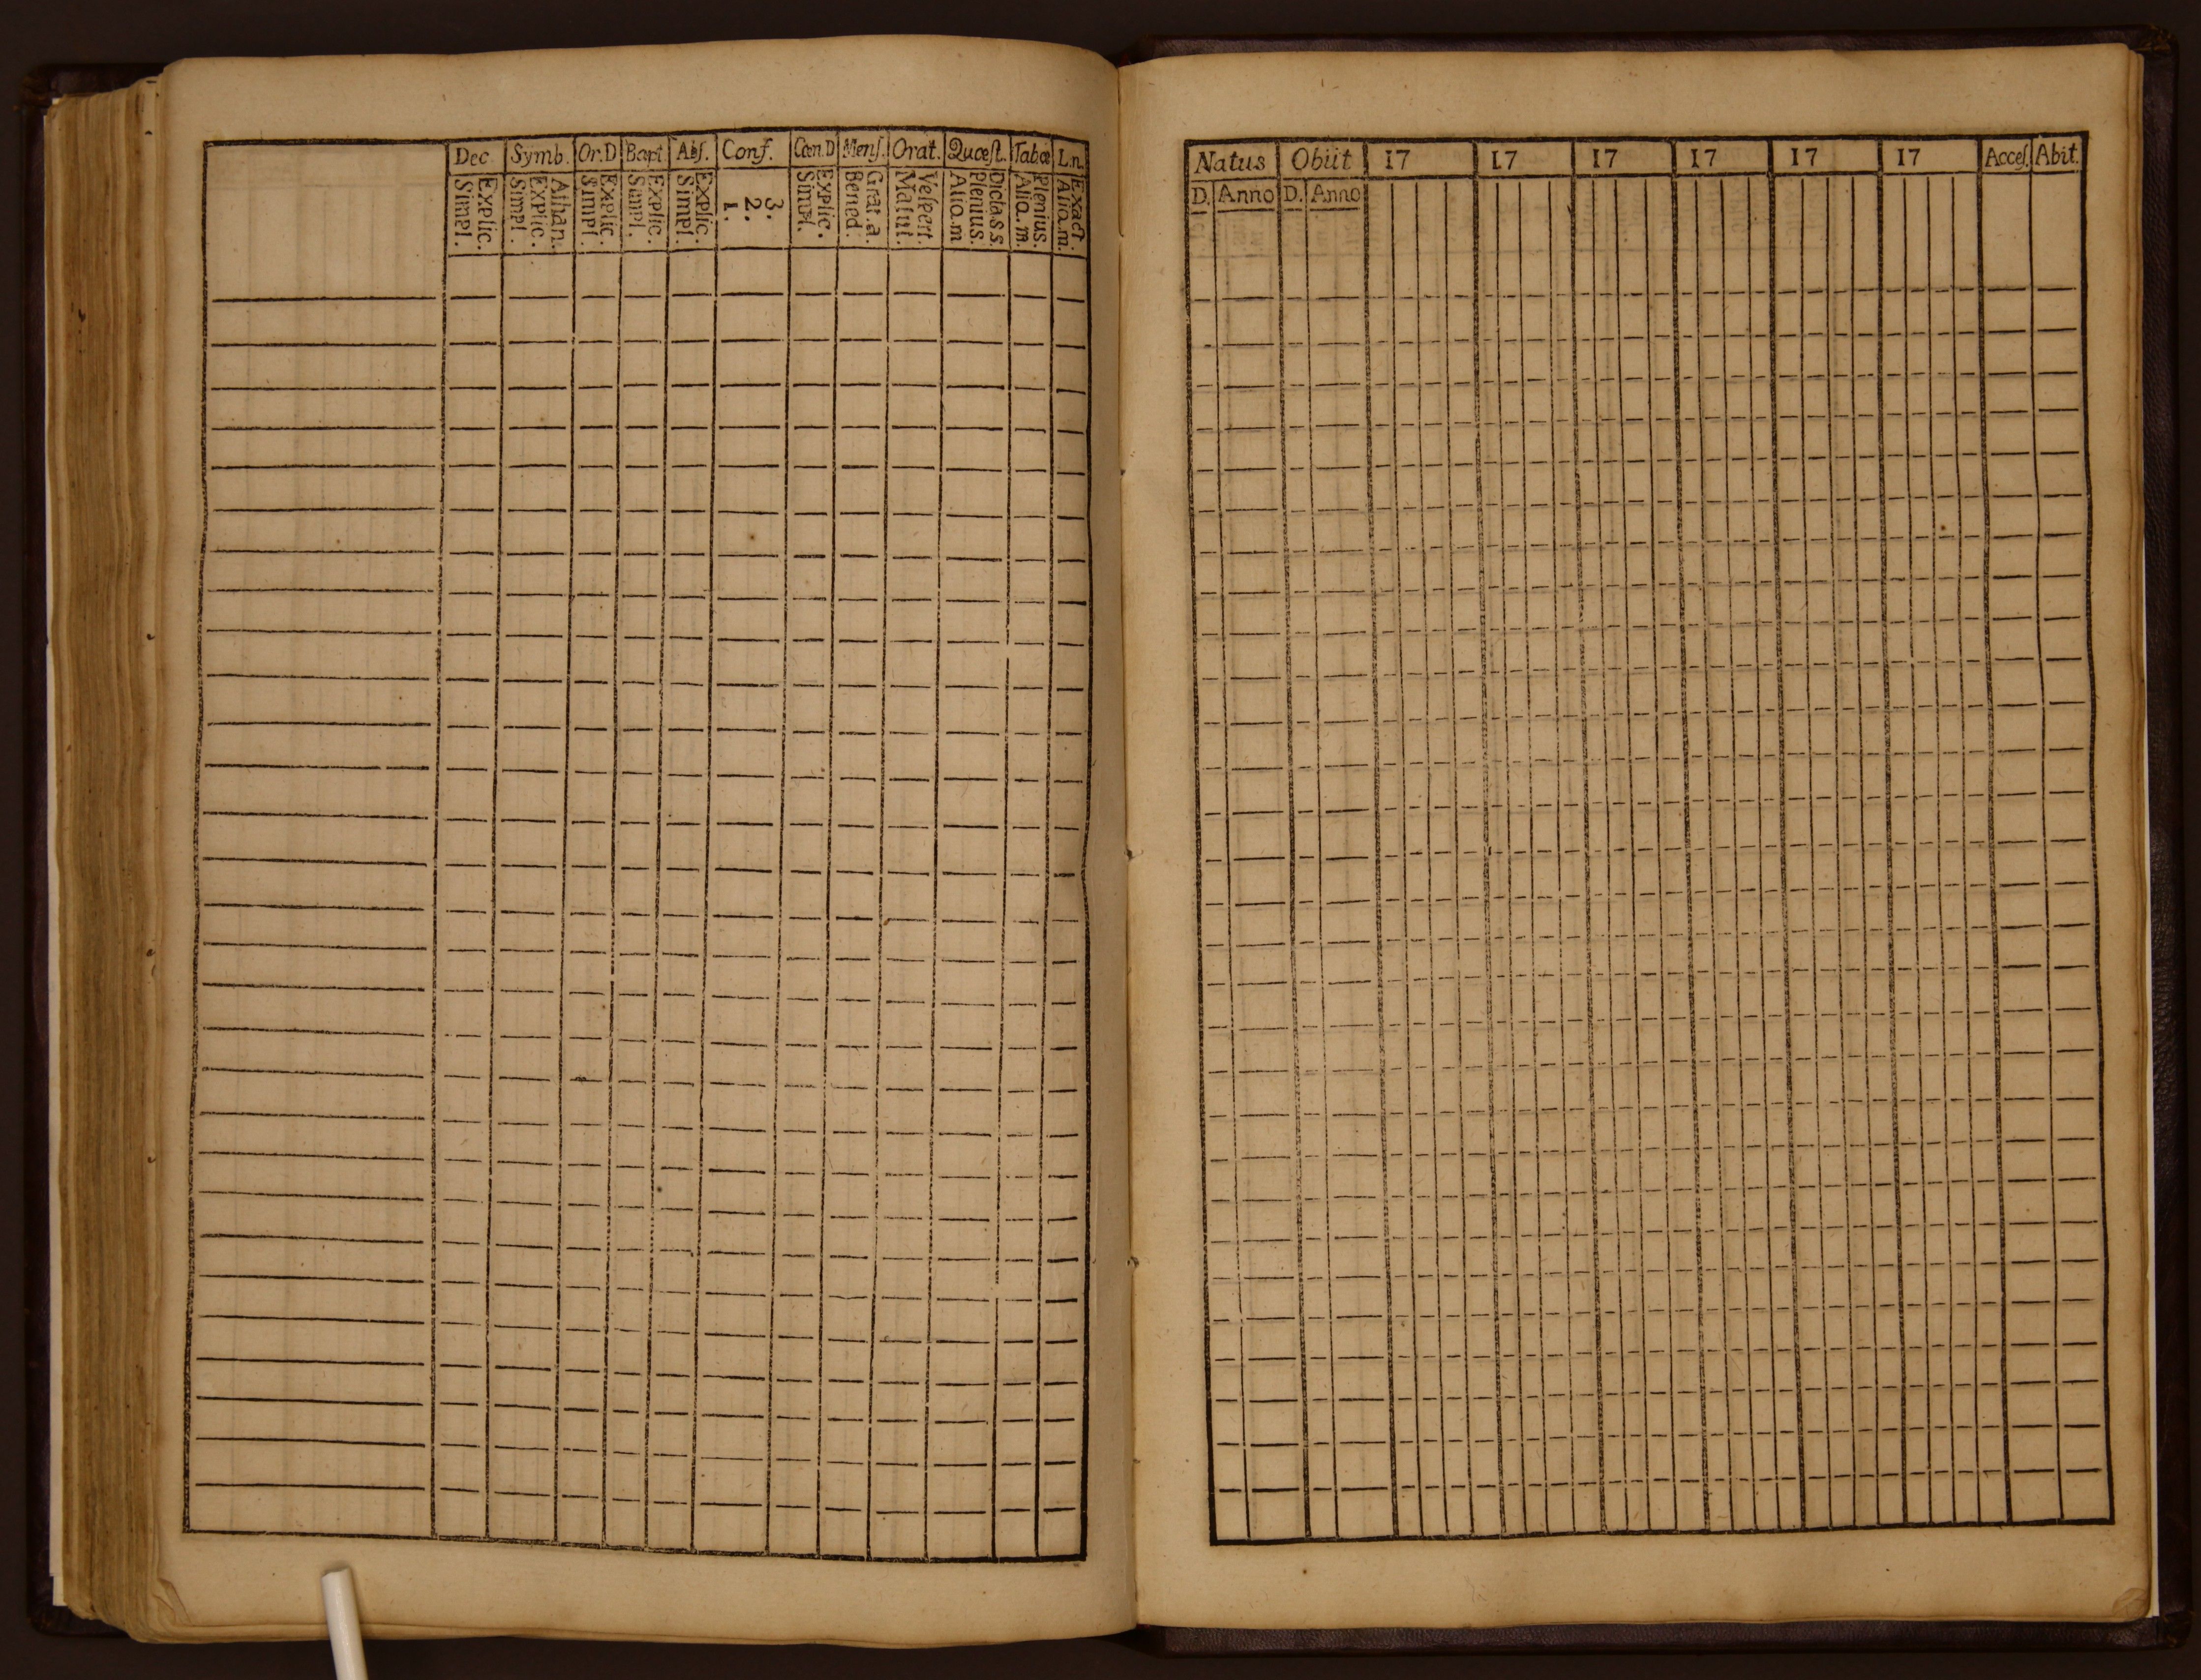 Dec. Symb. Or.D Bapt. Abſ. Conf. Cœn.D Menſ. Orat. Quæſt. Tabœ L.n.
Explic.
Simpl.
Athan.
Explic.
Simpl.
Explic.
Simpl.
Explic.
Simpl.
Explic.
Simpl.
3.
2.
1.
Explic.
Simpl.
Grat. a.
Bened.
Veſpert.
Matut.
Dicta s s.
Plenius.
Aliq. m
Plenius.
Aliq. m.
Exact.
Aliq. m.
Natus Obiit 17 17 17 17 17 17 Acceſ. Abit.
D. Anno D. Anno